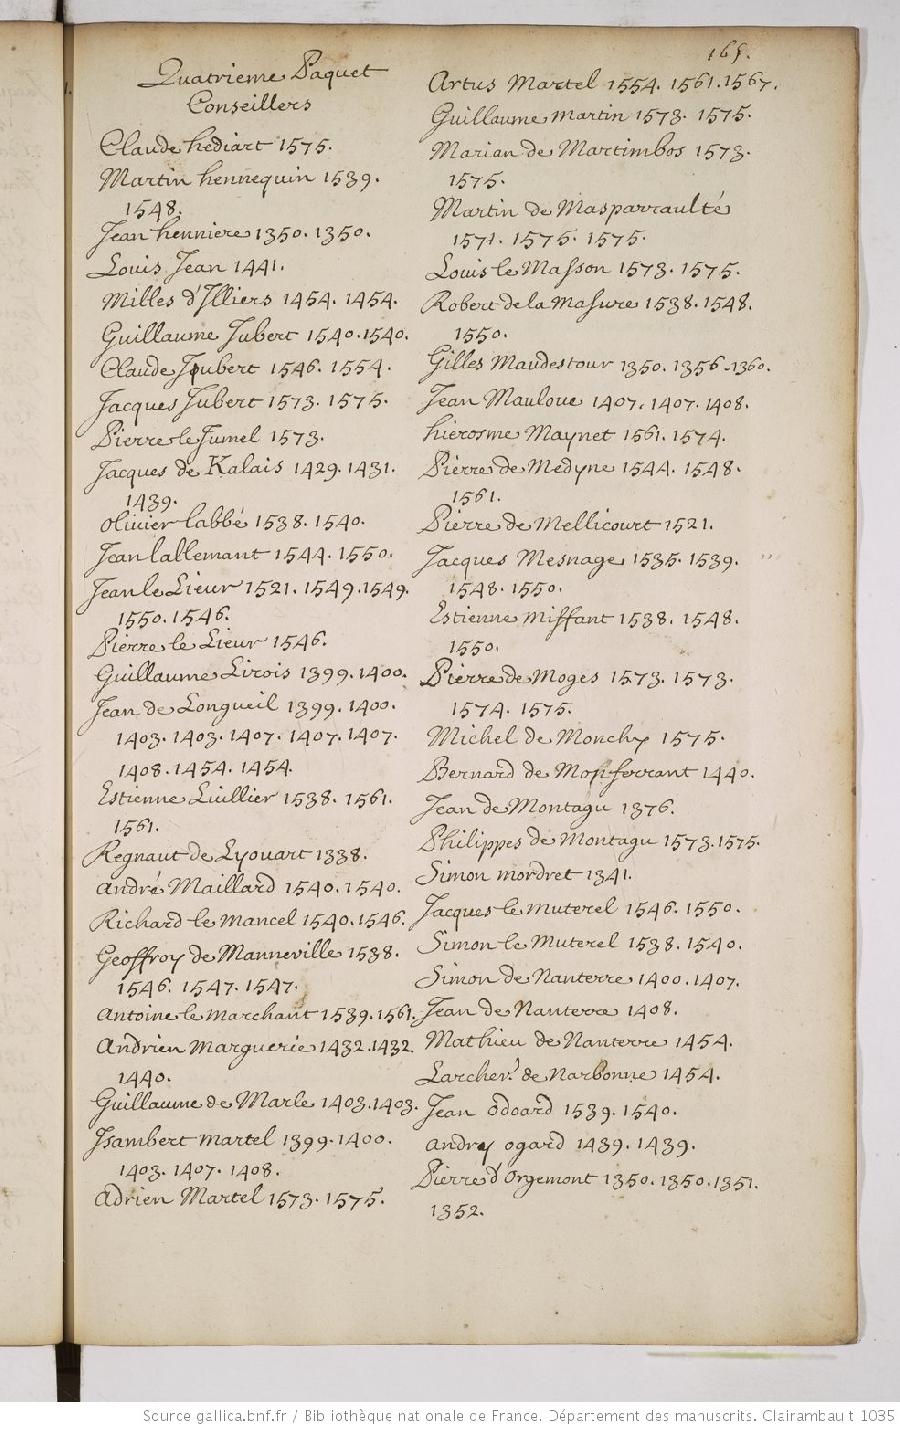 165.
Quatrieme Paquet
Conseillers
Claude hediart 1575.
Martin hennequin 1539.
1548.
Jean henniere 1350. 1350.
Louis Jean 1441.
Milles d'Illiers 1454. 1454.
Guillaume Jubert 1540. 1540.
Claude Joubert 1546. 1554.
Jacques Jubert 1573. 1575.
Pierre le Jumel 1573.
Jacques de Kalais 1429. 1431.
1439.
Olivier labbé 1538. 1540.
Jean lallemant 1544. 1550.
Jean le Lieur 1521. 1549. 1549.
1550. 1546.
Pierre le Lieur 1546.
Guillaume Lirois 1399. 1400.
Jean de Longueil 1399. 1400.
1403. 1403. 1407. 1407. 1407.
1408. 1454. 1454.
Estienne Luillier 1538. 1561.
1561.
Regnaut de Lyouart 1338.
André Maillard 1540. 1540.
Richard le Mancel 1540. 1546.
Geoffroy de Manneville 1538.
1546. 1547. 1547.
Antoine le Marchant 1539. 1561.
Andrien Marguerie 1432. 1432.
1440.
Guillaume de Marle 1403. 1403.
Isambert Martel 1399. 1400.
1403. 1407. 1408.
Adrien Martel 1573. 1575.
Artus Martel 1554. 1561. 1567.
Guillaume Martin 1573. 1575.
Marian de Martimbos 1573.
1575.
Martin de Masparraulté
1571. 1575. 1575.
Louis le Masson 1573. 1575.
Robert de la Masure 1538. 1548.
1550.
Gilles Maudestour 1350. 1356. 1360.
Jean Mauloue 1407. 1407. 1408.
hierosme Maynet 1561. 1574.
Pierre de Medyne 1544. 1548.
1561.
Pierre de Mellicourt 1521.
Jacques Mesnage 1535. 1539.
1548. 1550.
Estienne Miffant 1538. 1548.
1550.
Pierre de Moges 1573. 1573.
1574. 1575.
Michel de Monchy 1575.
Bernard de Monferrant 1440.
Jean de Montagu 1376.
Philippes de Montagu 1573. 1575.
Simon mordret 1341.
Jacques le muterel 1546. 1550.
Simon le Muterel 1538. 1540.
Simon de Nanterre 1400. 1407.
Jean de Nanterre 1408.
Mathieu de Nanterre 1454.
Larchev.e de Narbonne 1454.
Jean Odoard 1539. 1540.
Andry ogard 1439. 1439.
Pierre d'Orgemont 1350. 1350. 1351.
1352.
Source gallica.bnf.fr / Bibliothèque nationale de France. Département des manuscrits. Clairambault 1035